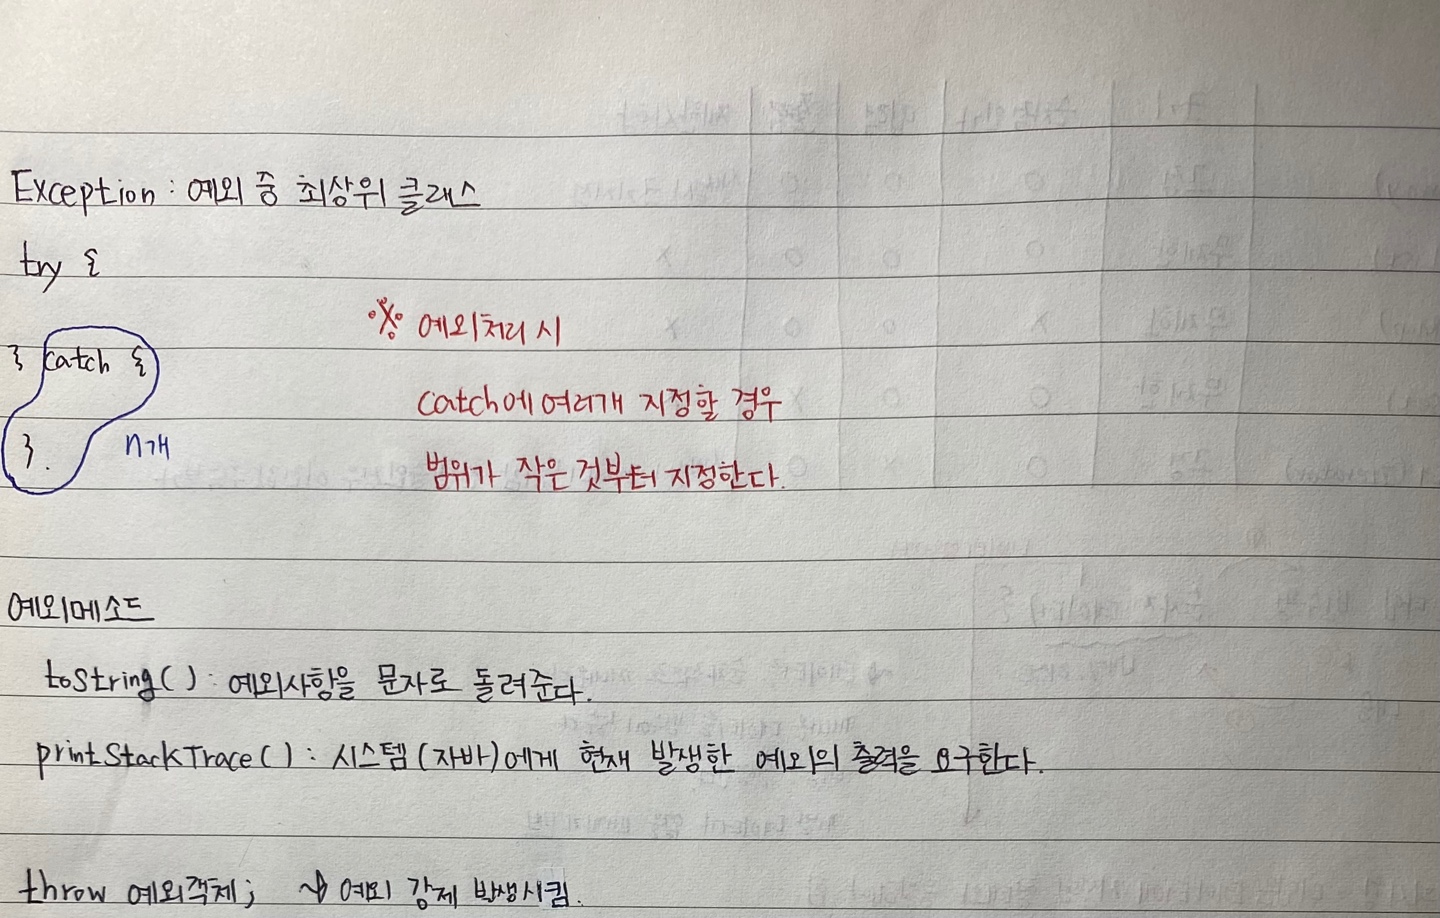 Exception : 예외 중 최상위 클래스
try {
※ 예외처리 시
} catch {
catch에 여러개 지정할 경우
}. n개
범위가 작은 것부터 지정한다.
예외메소드
toString( ) : 예외사항을 문자로 돌려준다.
printStackTrace( ) : 시스템(자바)에게 현재 발생한 예외의 출력을 요구한다.
throw 예외객체; → 예외 강제 발생시킴.